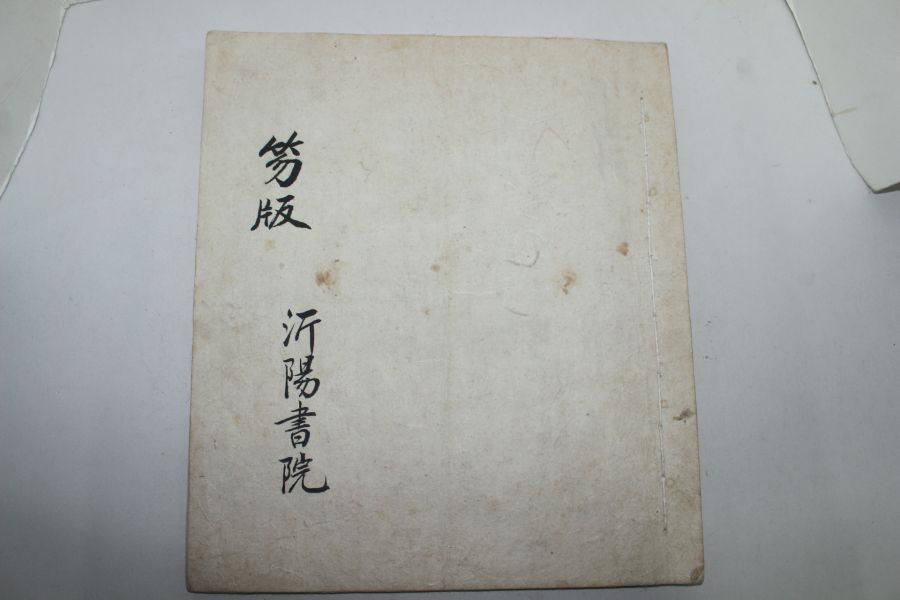 笏版
沂陽書院